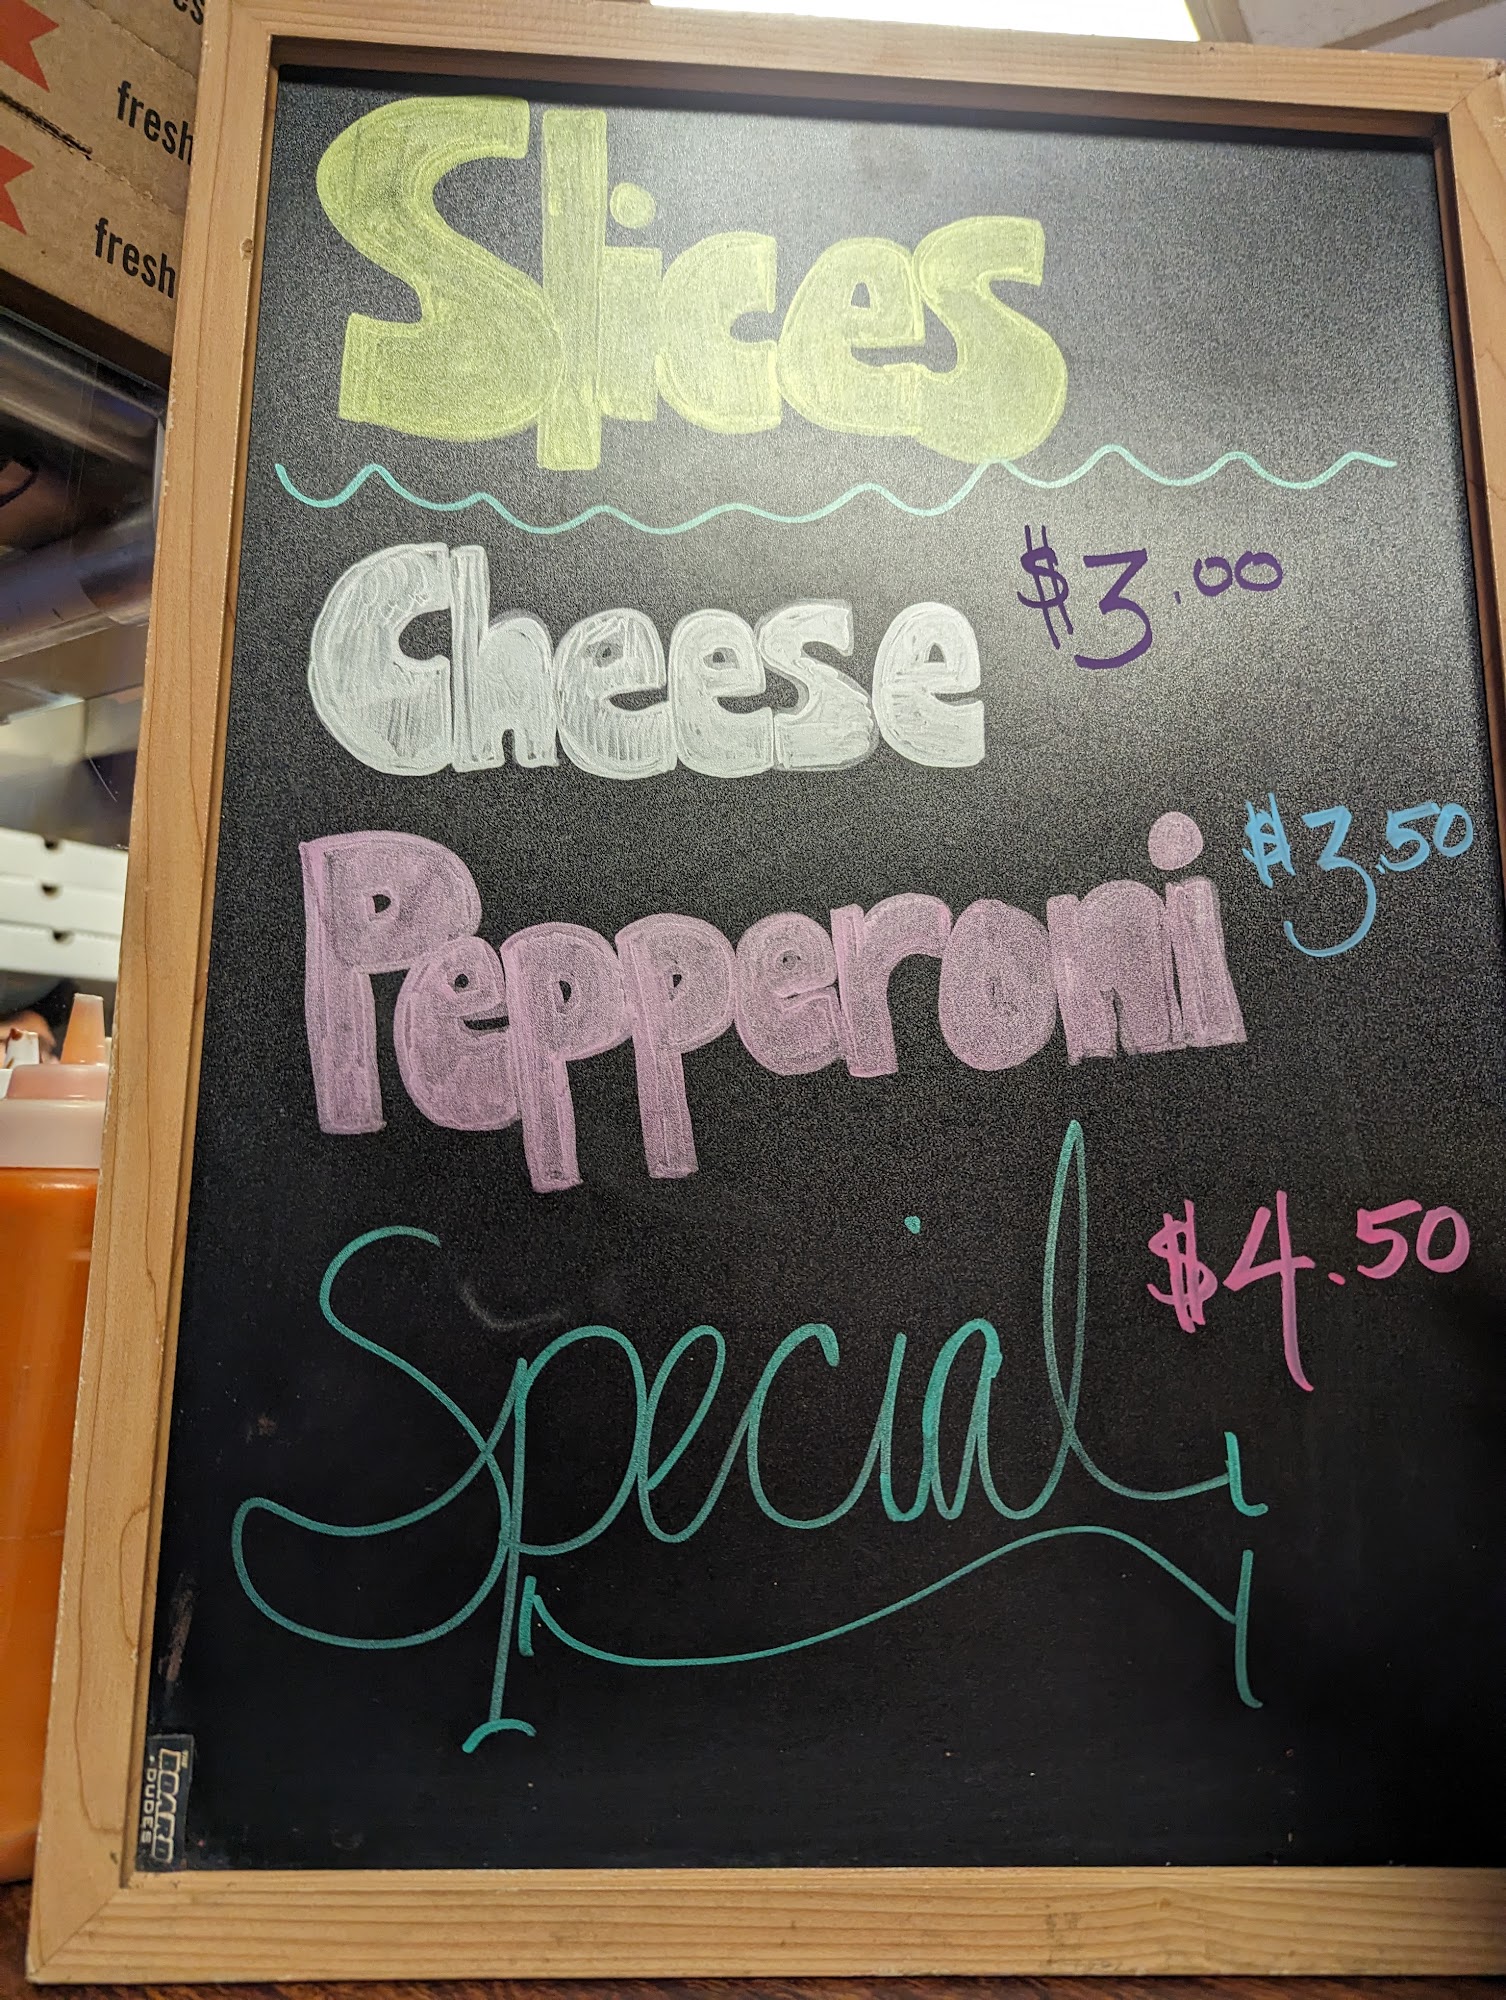 es
fresh
fresh
Slices
Cheese $3.00
Pepperoni $3.50
Special $4.50
THE BOARD DUDES